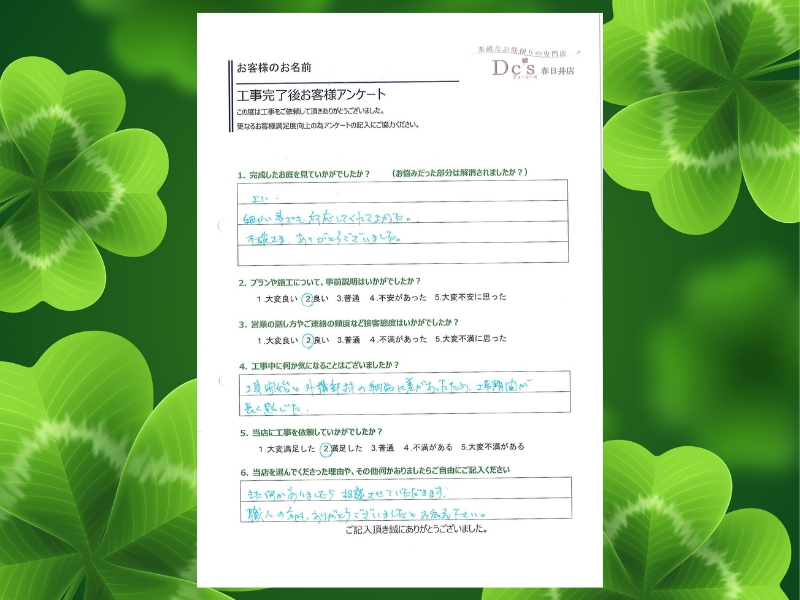 素敵なお庭創りの専門店
Dc's 春日井店
ディーシーズ
お客様のお名前
工事完了後お客様アンケート
この度は工事をご依頼して頂きありがとうございました。
更なるお客様満足度向上の為アンケートの記入にご協力ください。
1. 完成したお庭を見ていかがでしたか？ （お悩みだった部分は解消されましたか？）
よい.
細かい事でも対応してくれてよかった。
ありがとうございました。
2. プランや施工について、事前説明はいかがでしたか？
1.大変良い 2.良い 3.普通 4.不安があった 5.大変不安に思った
3. 営業の話し方やご連絡の頻度など接客態度はいかがでしたか？
1.大変良い 2.良い 3.普通 4.不満があった 5.大変不満に思った
4. 工事中に何か気になることはございましたか？
工事開始と外構部材の納品に差があったため、工事期間が
長く感じた.
5. 当店に工事を依頼していかがでしたか？
1.大変満足した 2.満足した 3.普通 4.不満がある 5.大変不満がある
6. 当店を選んでくださった理由や、その他何かありましたらご自由にご記入ください
また何かありましたら相談させていただきます.
職人の方にも、ありがとうございましたとお伝え下さい。
ご記入頂き誠にありがとうございました。